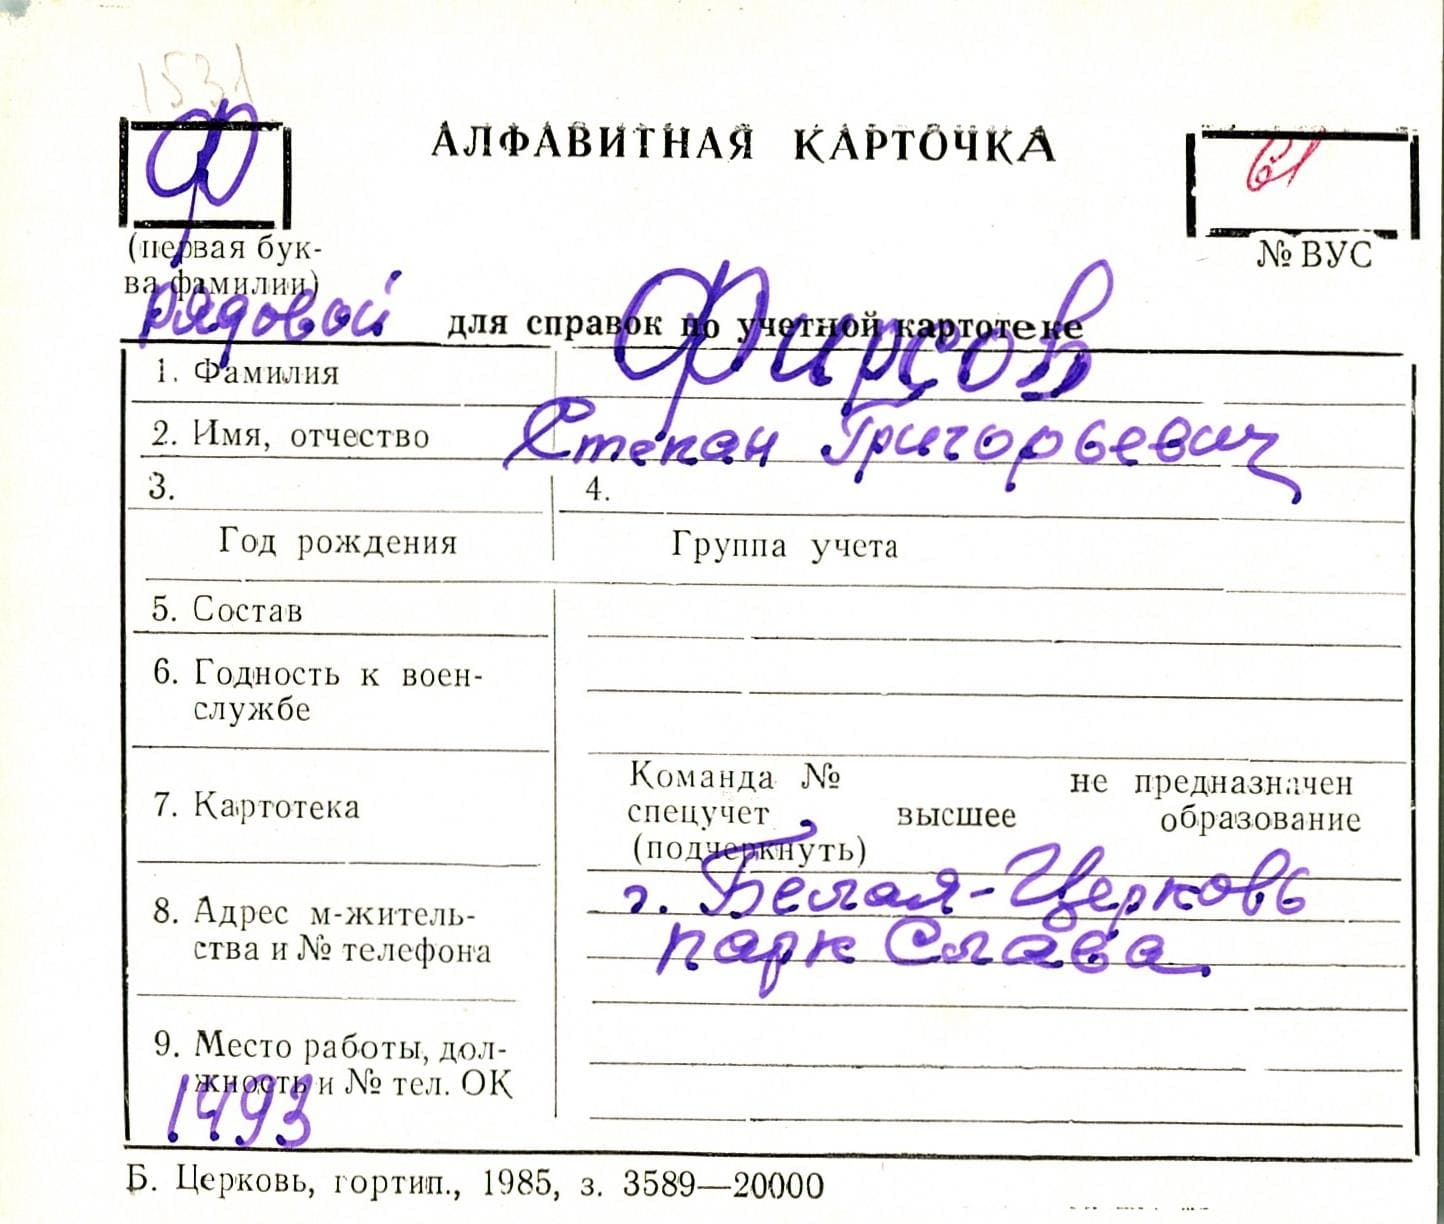 1531
Ф
АЛФАВИТНАЯ КАРТОЧКА
61
(первая бук-
ва фамилии)
№ ВУС
рядовой
для справок по учетной картотеке
1. Фамилия Фирсов
2. Имя, отчество Степан Григорьевич
3. 4.
Год рождения Группа учета
5. Состав
6. Годность к воен-
службе
7. Картотека
Команда № не предназначен
спецучет, высшее образование
(подчеркнуть)
8. Адрес м-житель-
ства и № телефона
г. Белая-Церковь
парк Слава.
9. Место работы, дол-
жность и № тел. ОК
1493
Б. Церковь, гортип., 1985, з. 3589—20000